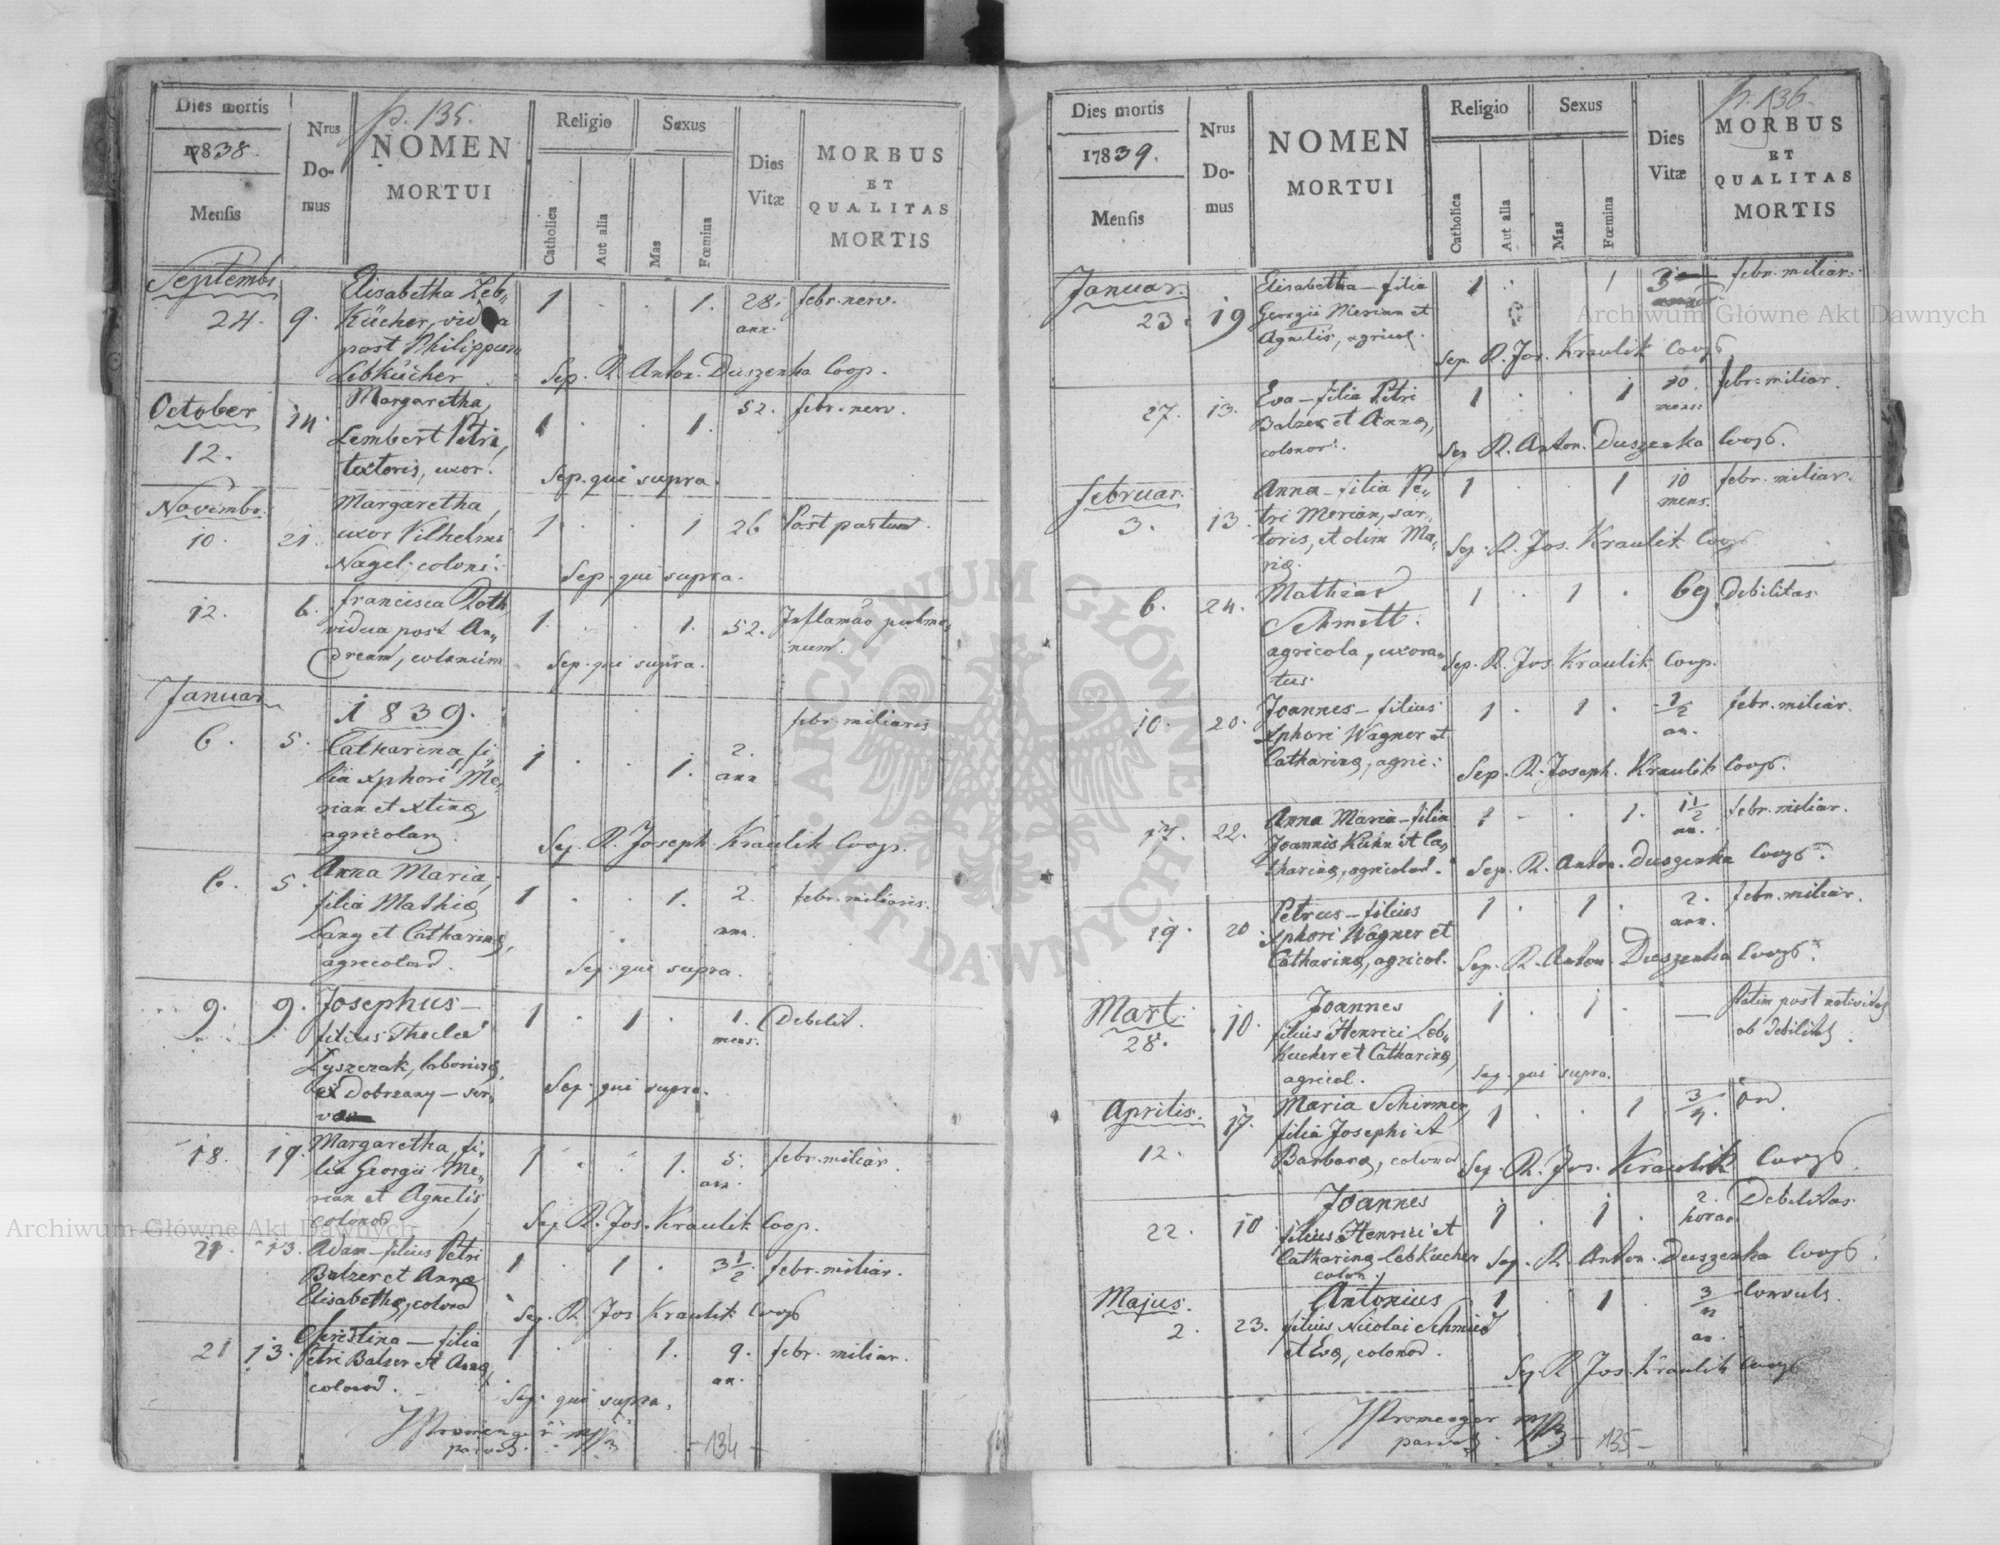 Dies mortis
1838.
Mensis
Nrus
Do-
mus
p. 135.
NOMEN
MORTUI
Religio
Sexus
Catholica
Aut alia
Mas
Fœmina
Dies
Vitæ
MORBUS
ET
QUALITAS
MORTIS
Septembr
24. 9. Elisabetha Leb-
Kücher, vidua
post Philippum
Lebkücher
1 . . 1. 28. febr. nerv.
ann.
Sep. R. Anton. Duszenka Coop.
October
12. 14. Margaretha,
Lembert Petri,
textoris, uxor.
1 . . 1. 52. febr. nerv.
Sep. qui supra.
Novembr.
10. 21. Margaretha,
uxor Vilhelmi
Nagel, coloni.
1 . . 1 26 Post partum.
Sep. qui supra.
12. 6. francisca Roth,
vidua post An-
dream, colonum
1. . . 1. 52. Inflamāo pulmo-
num.
Sep. qui supra.
Januar
1839.
6. 5. Catharina, fi-
lia Xphori Me-
rian et Xtinæ
agricolar.
1 . . 1. 2. febr. miliaris
ann
Sep. R. Joseph Kraulik Coop.
6. 5. Anna Maria,
filia Mathiæ
Lang et Catharinæ,
agricolar.
1 . . 1. 2. febr. miliaris.
ann.
Sep. qui supra.
9. 9. Josephus -
filius Theclæ
Lyszczak, laboriosæ,
ex Dobrzany - ser-
1 . 1 . 1. Debilit.
mens.
Sep. qui supra.
18. 19. Margaretha, fi-
lia Georgii Me-
rian et Agnetis,
colonor.
1 . . 1. 5. febr. miliar.
ann.
Sep. R. Jos. Kraulik Coop.
21. 13. Adam - filius Petri
Balzer et Annæ
Elisabethæ, colonor
1 . 1 . 3 1/2 febr. miliar.
Sep. R. Jos Kraulik Coop
21 13. Christina - filia
Petri Balzer et Annæ,
colonor.
1 . . 1. 9. febr. miliar.
an.
Sep. qui supra.
- 134 -
Dies mortis
1839.
Mensis
Nrus
Do-
mus
NOMEN
MORTUI
Religio
Sexus
Catholica
Aut alia
Mas
Fœmina
Dies
Vitæ
p. 136.
MORBUS
ET
QUALITAS
MORTIS
Januar.
23. 19 Elisabetha - filia
Georgii Merian et
Agnetis, agricol.
1 . 1 3 febr. miliar.
Sep. R. Jos. Kraulik Coop
27. 13. Eva - filia Petri
Balzer et Annæ,
colonor.
1 . . 1 10. febr. miliar.
mens.
Sep R. Anton. Duszenka Coop.
februar.
3. 13. Anna - filia Pe-
tri Merian, sar-
toris, et olim Ma-
riæ.
1 . . 1 10 febr. miliar.
mens.
Sep. R. Jos. Kraulik Coop
6. 24. Mathias
Schmitt.
agricola, uxora-
tus.
1 . 1 . 69. Debilitas
Sep. R. Jos Kraulik Coop.
10. 20. Joannes - filius
Xphori Wagner et
Catharinæ, agric.
1 . 1 . 1/2 febr. miliar.
an.
Sep. R. Joseph. Kraulik Coop.
17. 22. Anna Maria - filia
Joannis Kuhn et Ca-
tharinæ, agricolar.
1 - . 1. 1 1/2 febr. miliar.
an.
Sep. R. Anton. Duszenka Coop
19. 20 Petrus - filius
Xphori Wagner et
Catharinæ, agricol.
1 . 1 . 2. febr. miliar.
ann.
Sep. R. Anton. Duszenka Coop
Mart.
28. 10. Joannes
filius Henrici Leb-
Kucher et Catharinæ,
agricol.
1 . 1 . — statim post nativitas
ob debilitas.
Sep. qui supra.
Aprilis.
12. 17. Maria Schirmer,
filia Josephi et
Barbaræ, colonor
1 . . 1 3/4.
Sep. R. Jos. Kraulik Coop.
22. 10 Joannes
filius Henrici et
Catharinæ Lebkucher
colon.
1 . 1 . 2. Debilitas
horar.
Sep. R. Anton. Duszenka Coop.
Majus.
2. 23. Antonius
filius Nicolai Schmied
et Evæ, colonor.
1 . 1 . 3 Convuls.
an.
Sep R. Jos. Kraulik Coop
- 135 -
Archiwum Główne Akt Dawnych
Archiwum Główne Akt Dawnych
ARCHIWUM GŁÓWNE AKT DAWNYCH